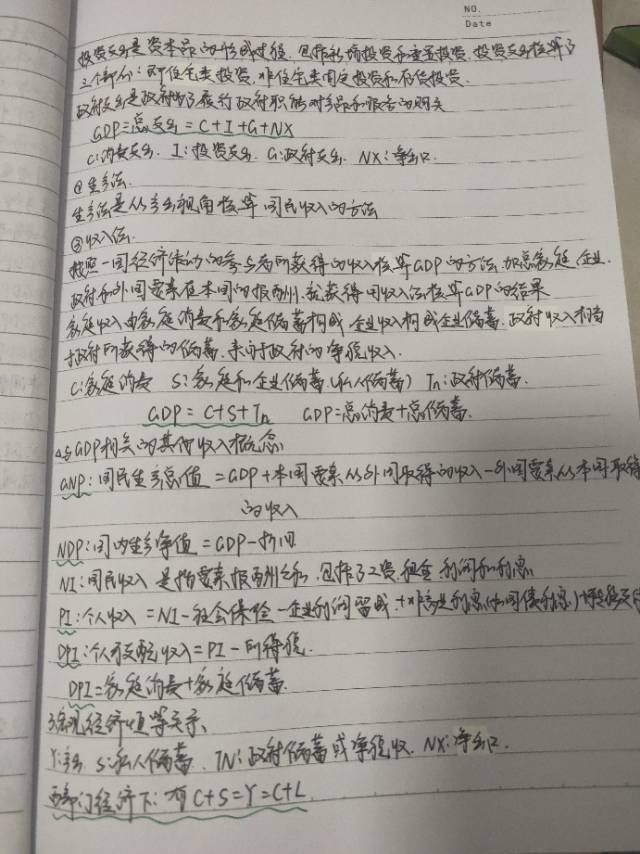 NO.
Date
投资支出是资本品的形成过程,包括新增投资和重置投资,投资支出核算了
三个部分:即住宅类投资,非住宅类固定投资和存货投资.
政府支出是政府为了履行政府职能对产品和服务的购买
GDP=总支出=C+I+G+NX
C:消费支出. I:投资支出. G:政府支出. NX:净出口.
②生产法.
生产法是从产出视角核算国民收入的方法
③收入法.
按照一国经济活动的参与者所获得的收入核算GDP的方法.加总家庭,企业.
政府和外国要素在本国的报酬,就获得用收入法核算GDP的结果
家庭收入由家庭消费和家庭储蓄构成,企业收入构成企业储蓄.政府收入相当
于政府所获得的储蓄.来自于政府的净税收入.
C:家庭消费 S:家庭和企业储蓄(私人储蓄) Tn:政府储蓄.
GDP=C+S+Tn GDP=总消费+总储蓄.
与GDP相关的其他收入概念
GNP:国民生产总值=GDP+本国要素从外国取得的收入-外国要素从本国取得
的收入
NDP:国内生产净值=GDP-折旧
NI:国民收入 是指要素报酬之和,包括了工资.租金.利润和利息
PI:个人收入=NI-社会保险-企业利润留成+非产业利息(如国债利息)+
DPI:个人可支配收入=PI-所得税.
DPI=家庭消费+家庭储蓄.
3.宏观经济恒等关系
Y:产出 S:私人储蓄. TN:政府储蓄或净税收. NX:净出口.
两部门经济下:有C+S=Y=C+I.